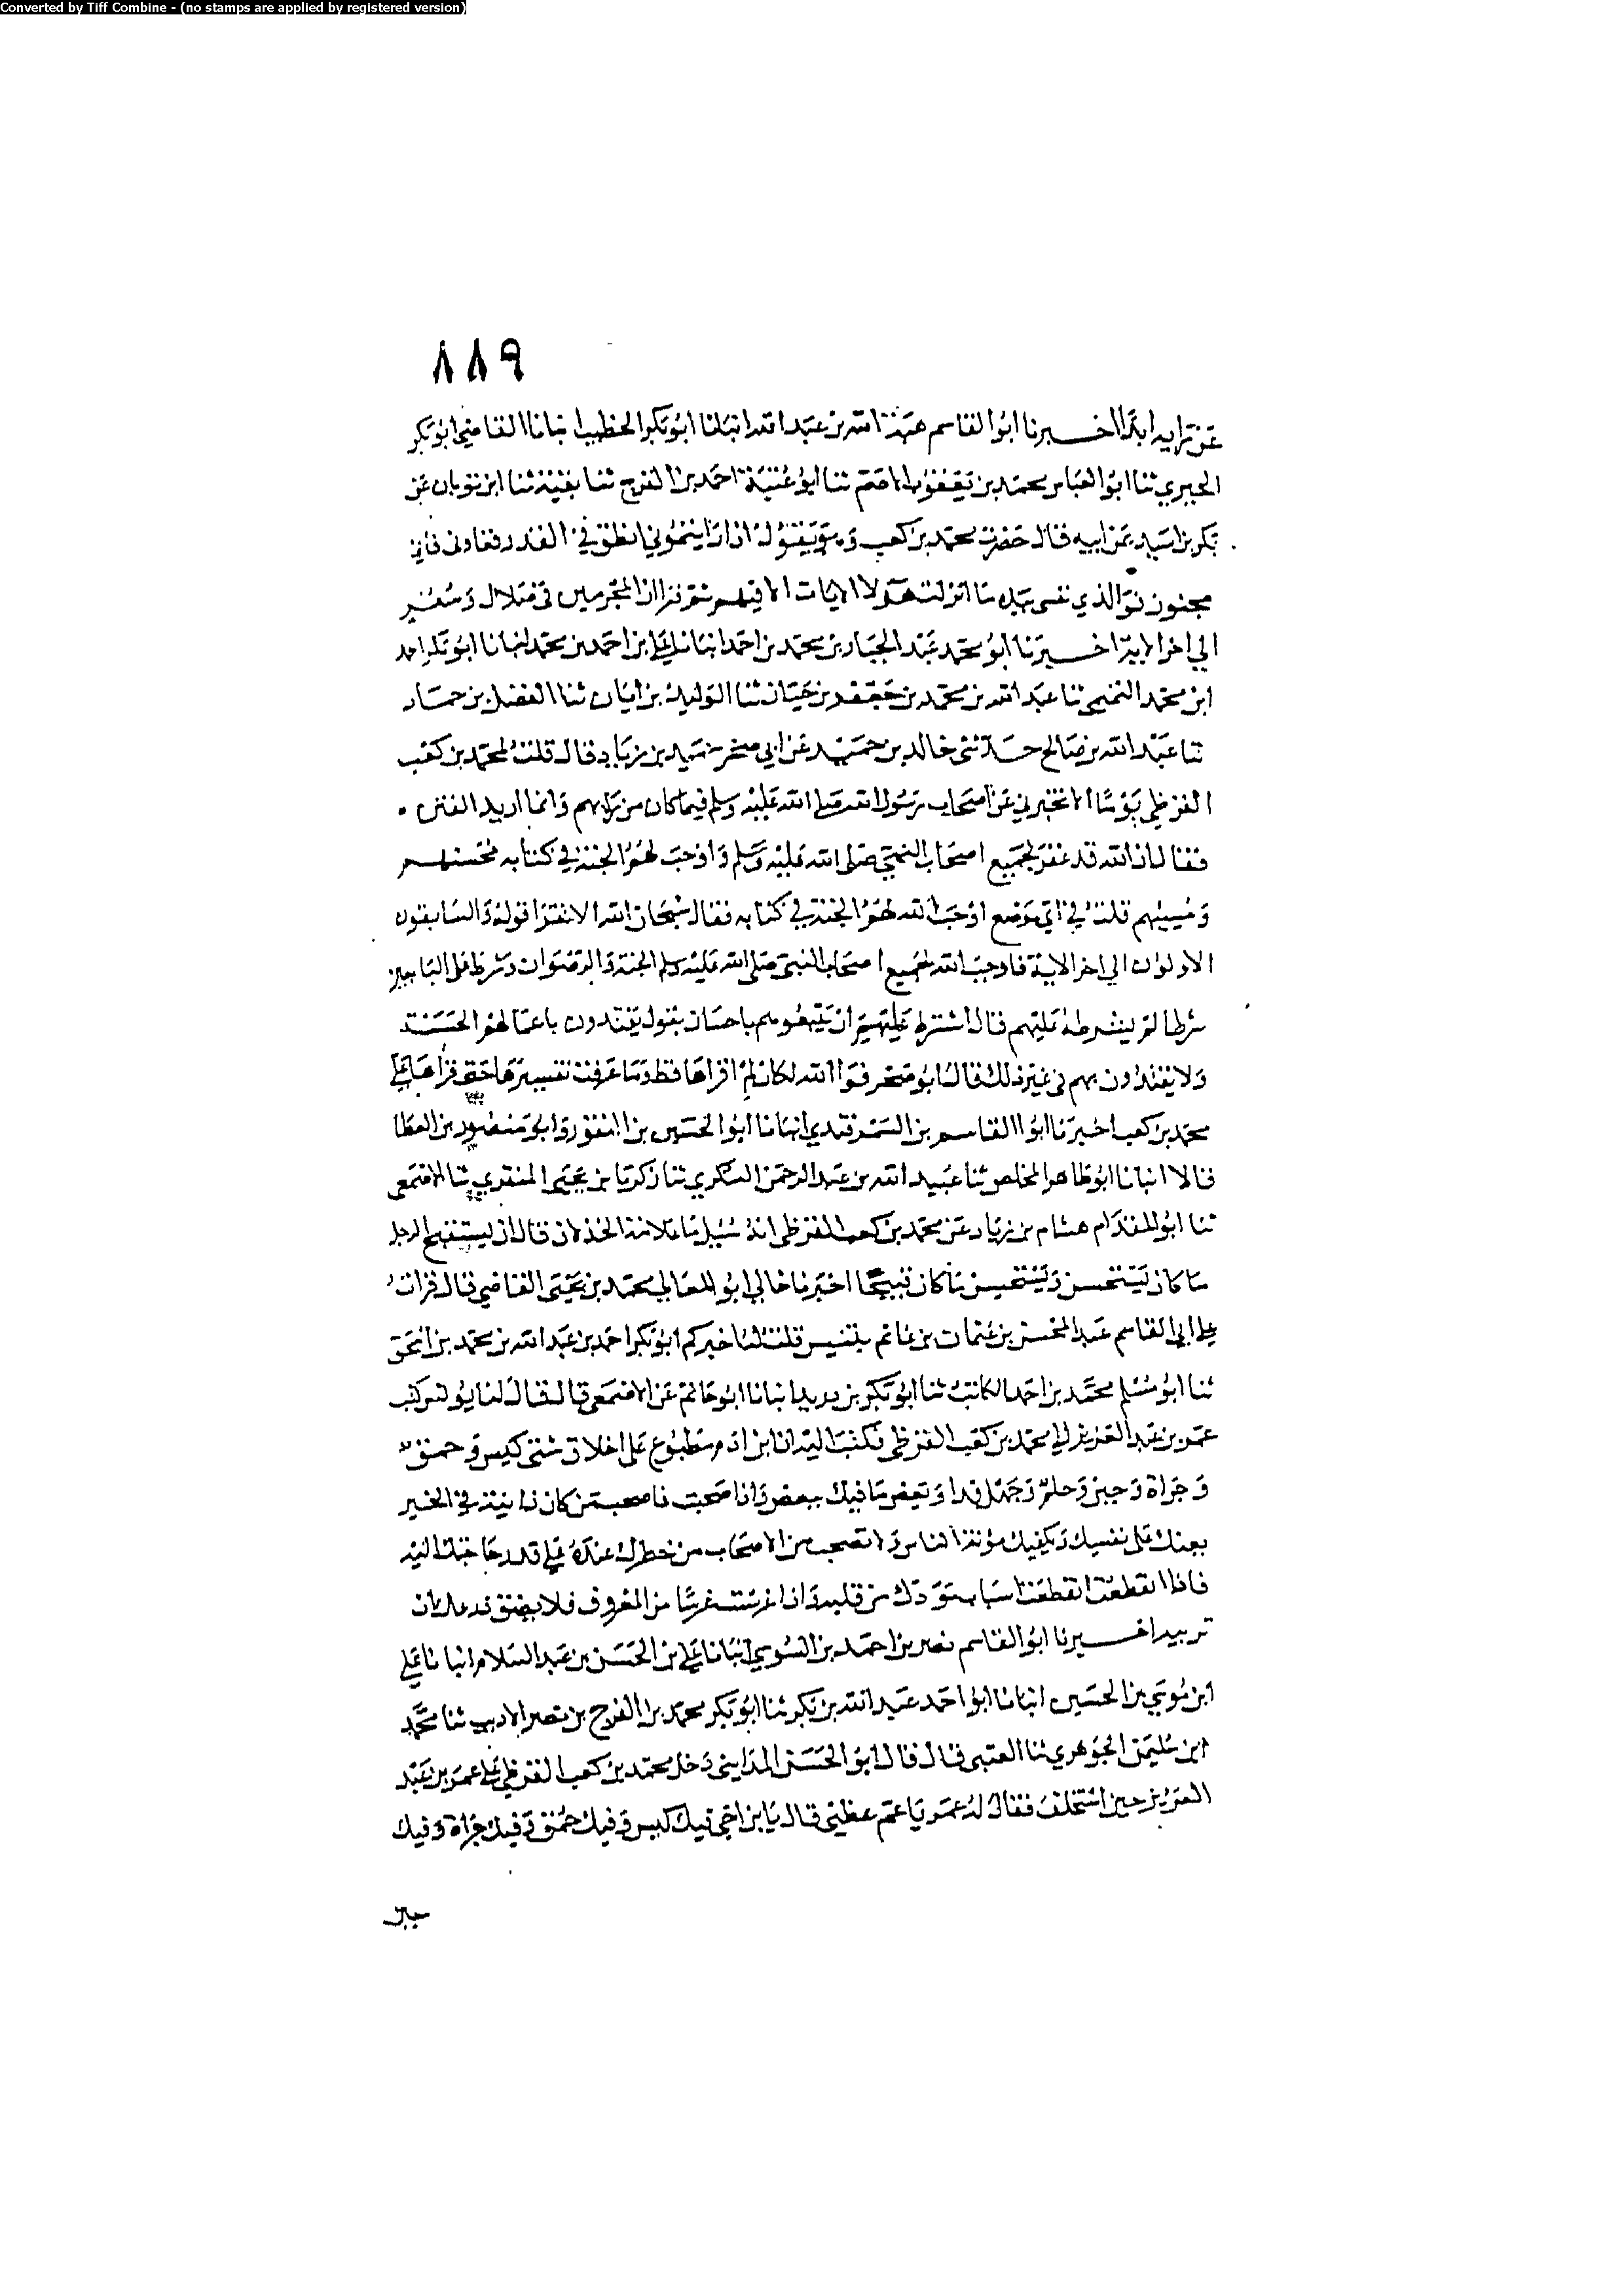 Converted by Tiff Combine - (no stamps are applied by registered version)
٨٨٩
عن رايه ابدا اخبرنا ابو القاسم هبة الله بن عبد الله انبانا ابو بكر الخطيب انبانا القاضي ابو بكر
الحيري ثنا ابو العباس محمد بن يعقوب الاصم ثنا ابو عتبة احمد بن الفرج ثنا بقية ثنا ابن ثوبان عن
بكر بن اسيد عن ابيه قال حضرت محمد بن كعب وهو يقول اذا رايتموني انطلق في القدر فغلوني فاني
مجنون فوالذي نفسي بيده ما انزلت هولا الايات الا فيهم ثم قرا ان المجرمين في ضلال وسعر
الي اخر الاية اخبرنا ابو محمد عبد الجبار بن محمد بن احمد انبانا علي بن احمد بن محمد انبانا ابو بكر احمد
ابن محمد التميمي ثنا عبد الله بن محمد بن جعفر بن حيان ثنا الوليد بن ابان ثنا الفضل بن حماد
ثنا عبد الله بن صالح حدثني خالد بن حميد عن ابي صخر حميد بن زياد قال قلت لمحمد بن كعب
القرظي يوما الا تخبرني عن اصحاب رسول الله صلي الله عليه وسلم فيما كان من رايهم وانما اريد الفتن
فقال ان الله قد غفر لجميع اصحاب النبي صلى الله عليه وسلم واوجب لهم الجنة في كتابه محسنهم
ومسيئهم قلت في اي موضع اوجب الله لهم الجنة في كتابه فقال سبحان الله الا تقرا قوله والسابقون
الاولون الي اخر الاية فاوجب الله لجميع اصحاب النبي صلى الله عليه وسلم الجنة والرضوان وشرط على التابعين
شرطا لم يشرطه عليهم قال اشترط عليهم ان يتبعوهم باحسان يقول يقتدون باعمالهم الحسنة
ولا يقتدون بهم في غير ذلك قال ابو صخر فوالله لكان لم اقراها قط وما عرفت تفسيرها حتى قراها علي
محمد بن كعب اخبرنا ابو القاسم بن السمرقندي انبانا ابو الحسين بن النقور وابو منصور بن العطا
قالا انبانا ابو طاهر المخلص ثنا عبيد الله بن عبد الرحمن السكري ثنا زكريا بن يحيى المنقري ثنا الاصمعي
ثنا ابو المقدام هشام بن زياد عن محمد بن كعب القرظي انه سئل ما علامة الخذلان قال ان يستقبح الرجل
ما كان يستحسن ويستحسن ما كان قبيحا اخبرنا خالي ابو المعالي محمد بن يحيى القاضي قال قرات
علي ابي القاسم عبد المحسن بن عثمان بن غانم بتنيس قلت له اخبركم ابو بكر احمد بن عبد الله بن محمد بن اسحق
ثنا ابو مسلم محمد بن احمد الكاتب ثنا ابو بكر بن دريد انبانا ابو حاتم عن الاصمعي قال قال لنا يونس كتب
عمر بن عبد العزيز الي محمد بن كعب القرظي فكتب اليه ان ابن ادم مطبوع على اخلاق شتى كيس وحمق
وجراة وجبن وحلم وجهل فداو بعض ما فيك ببعض واذا صحبت فاصحب من كان ذا نية في الخير
يعينك على نفسك ويكفيك مؤنة الناس ولا تصحب من الاصحاب من خطرك عنده علي قدر حاجتك اليه
فاذا انقطعت انقطعت اسباب مودتك من قلبه واذا غرست غرسا من المعروف فلا يضق ذرعك ان
تربيه اخبرنا ابو القاسم نصر بن احمد بن السوسي انبانا علي بن الحسن بن عبد السلام انبانا علي
ابن موسي بن الحسين انبانا ابو احمد عبيد الله بن بكر ثنا ابو بكر محمد بن الفرح بن نصر الاديب ثنا محمد
ابن سليمن الجوهري ثنا العتبي قال قال ابو الحسن المدايني دخل محمد بن كعب القرظي علي عمر بن عبد
العزيز حين استخلف فقال له عمر يا عم عظني قال يا بن اخي فيك كيس وفيك حمق وفيك جراة وفيك
جبن